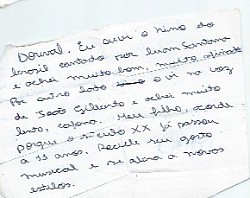 Dorval. Eu ouvi o hino do
brasil cantado por Luan Santana
e achei muito bom, muito afinado
Por outro lado o vi na voz
de João Gilberto e achei muito
lento, cafona. Meu filho, acorde
porque o século XX já passou
a 11 anos. Recicle seu gosto
musical e se abra a novos
estilos.